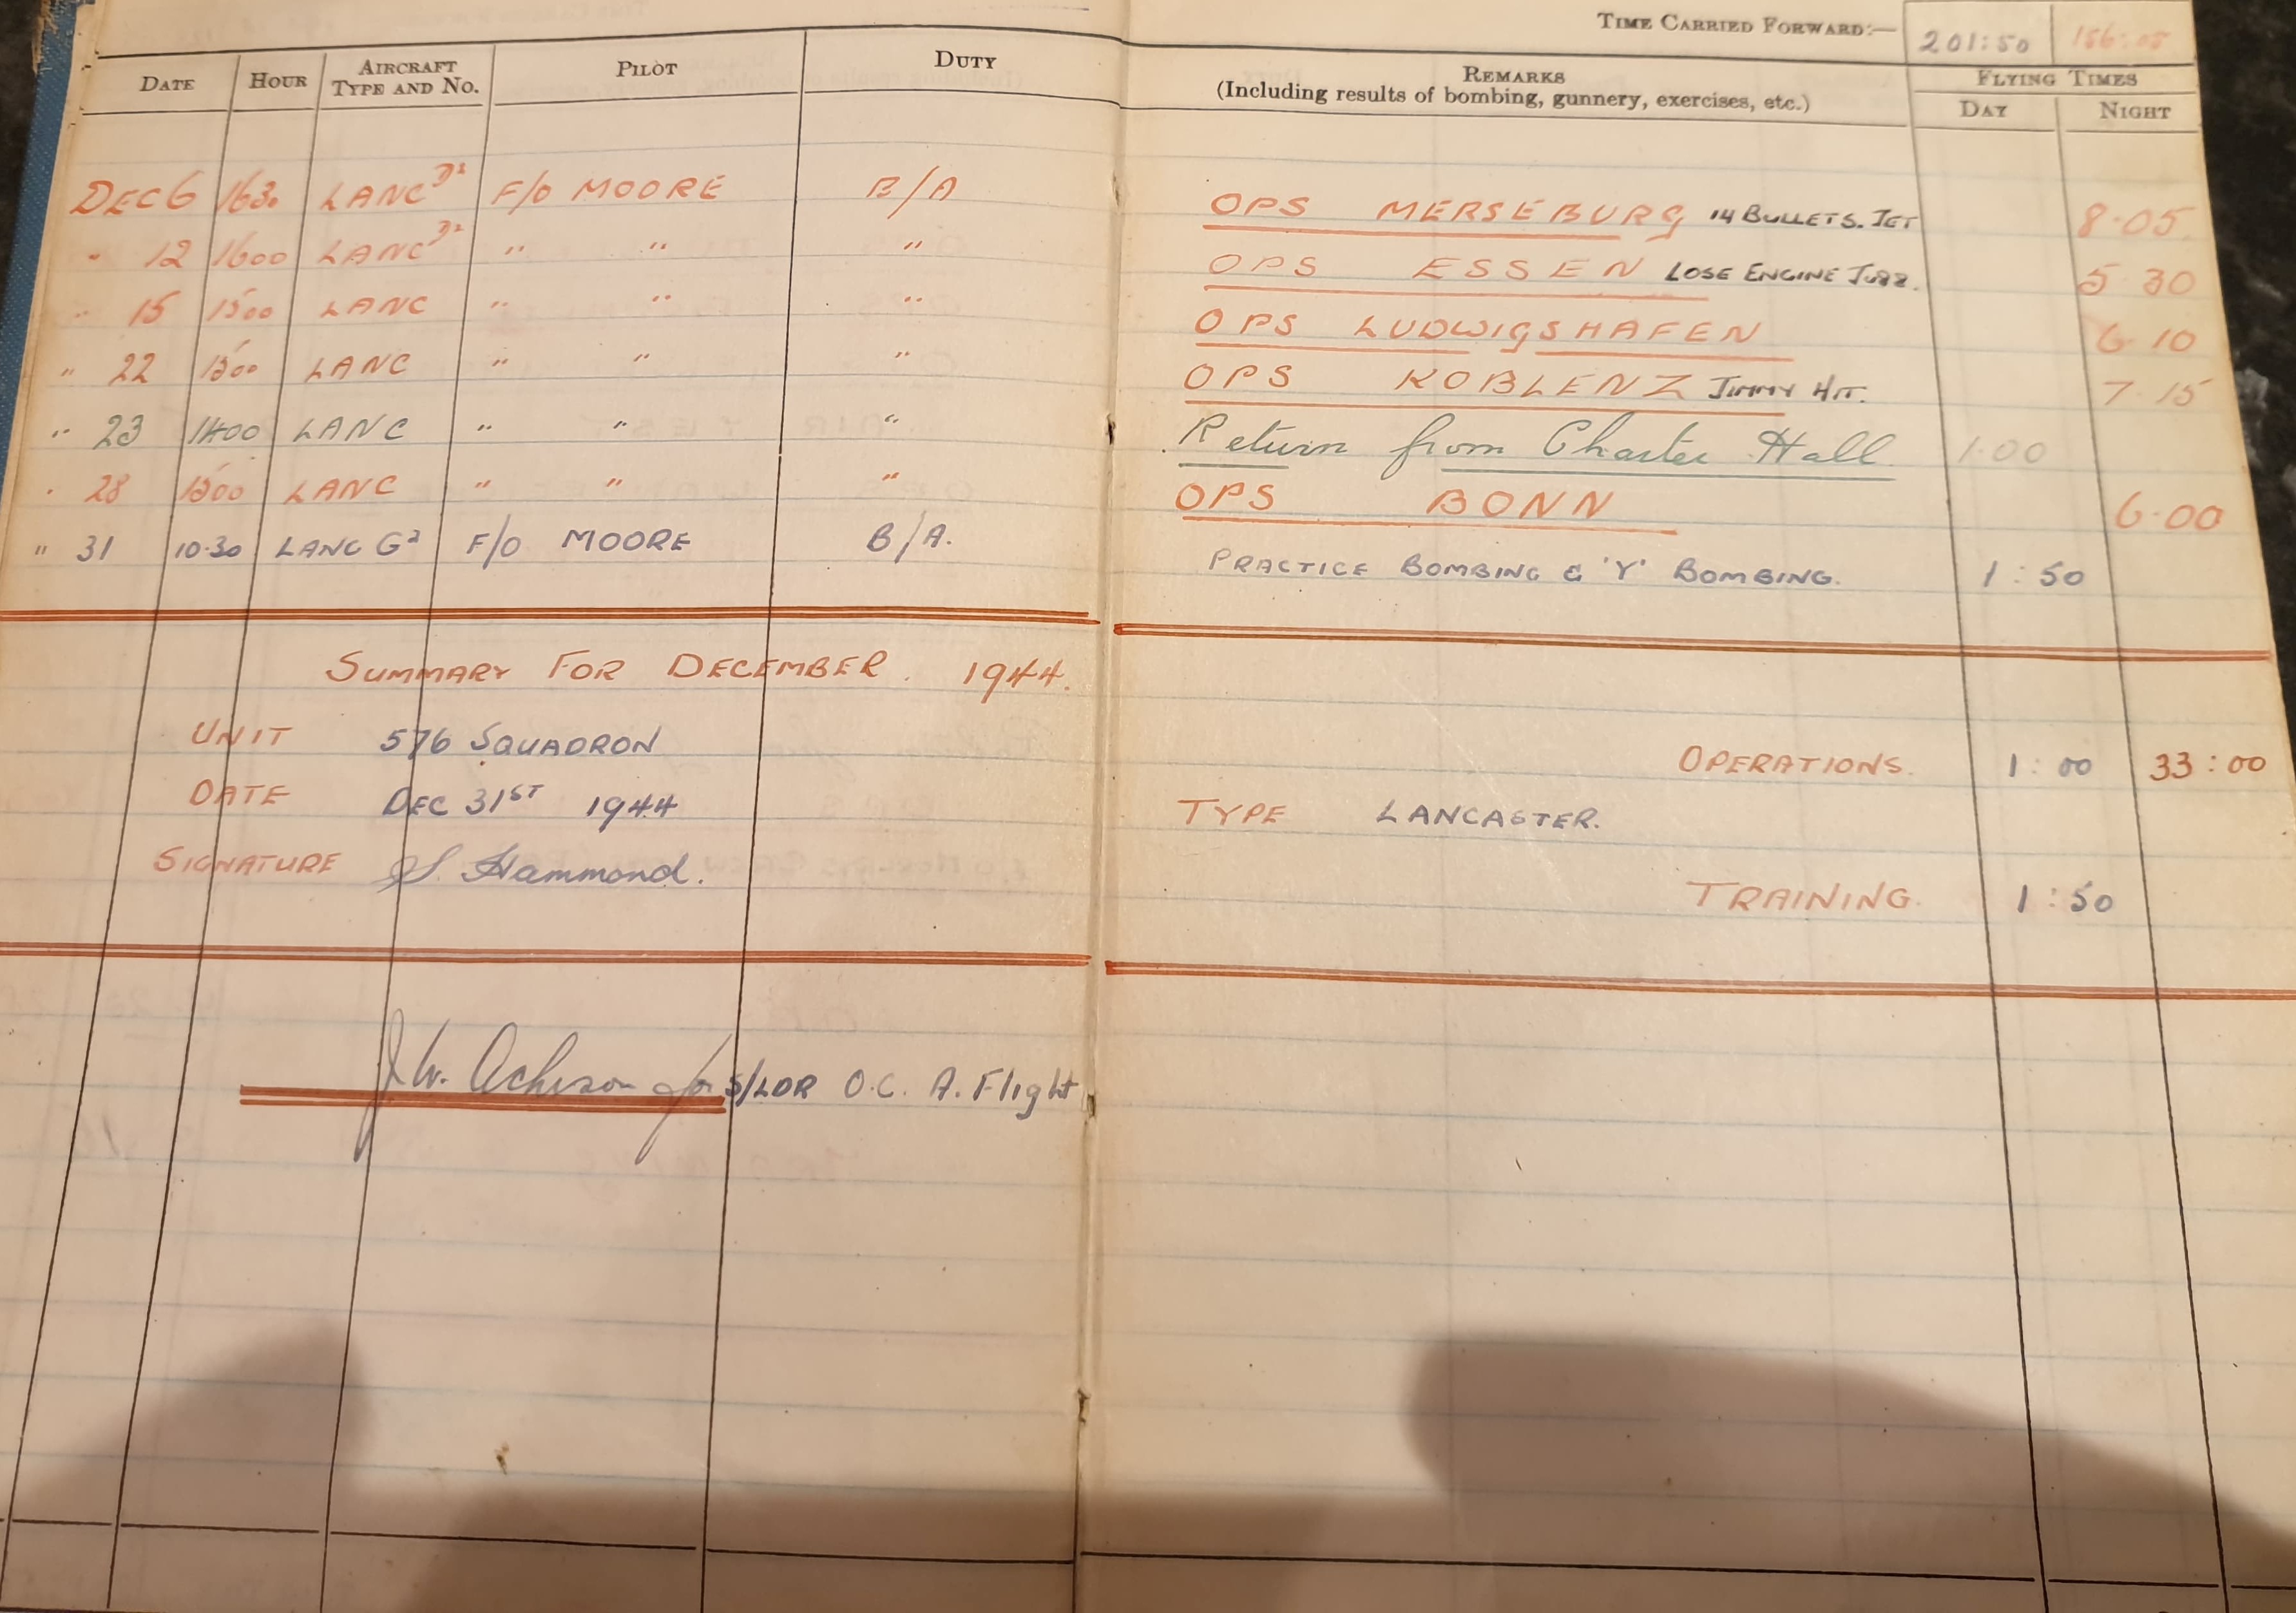 TIME CARRIED FORWARD:— 201:50 156:05
DATE HOUR AIRCRAFT TYPE AND No. PILOT DUTY REMARKS (Including results of bombing, gunnery, exercises, etc.) FLYING TIMES DAY NIGHT
DEC 6 1630 LANC D² F/O MOORE B/A OPS MERSEBURG 14 BULLETS. JET 8·05
" 12 1600 LANC D² " " " OPS ESSEN LOSE ENGINE 5 30
" 15 1500 LANC " " " OPS LUDWIGSHAFEN 6 10
" 22 1500 LANC " " " OPS KOBLENZ JIMMY HIT. 7 15
" 23 1400 LANC " " " Return from Charter Hall 1·00
" 28 1500 LANC " " " OPS BONN 6·00
" 31 10·30 LANC G² F/O MOORE B/A. PRACTICE BOMBING & 'Y' BOMBING. 1:50
SUMMARY FOR DECEMBER. 1944.
UNIT 576 SQUADRON
OPERATIONS. 1:00 33:00
DATE DEC 31ST 1944
TYPE LANCASTER.
SIGNATURE S. Hammond.
TRAINING. 1:50
J.W. Acheson for S/LDR O.C. A. Flight